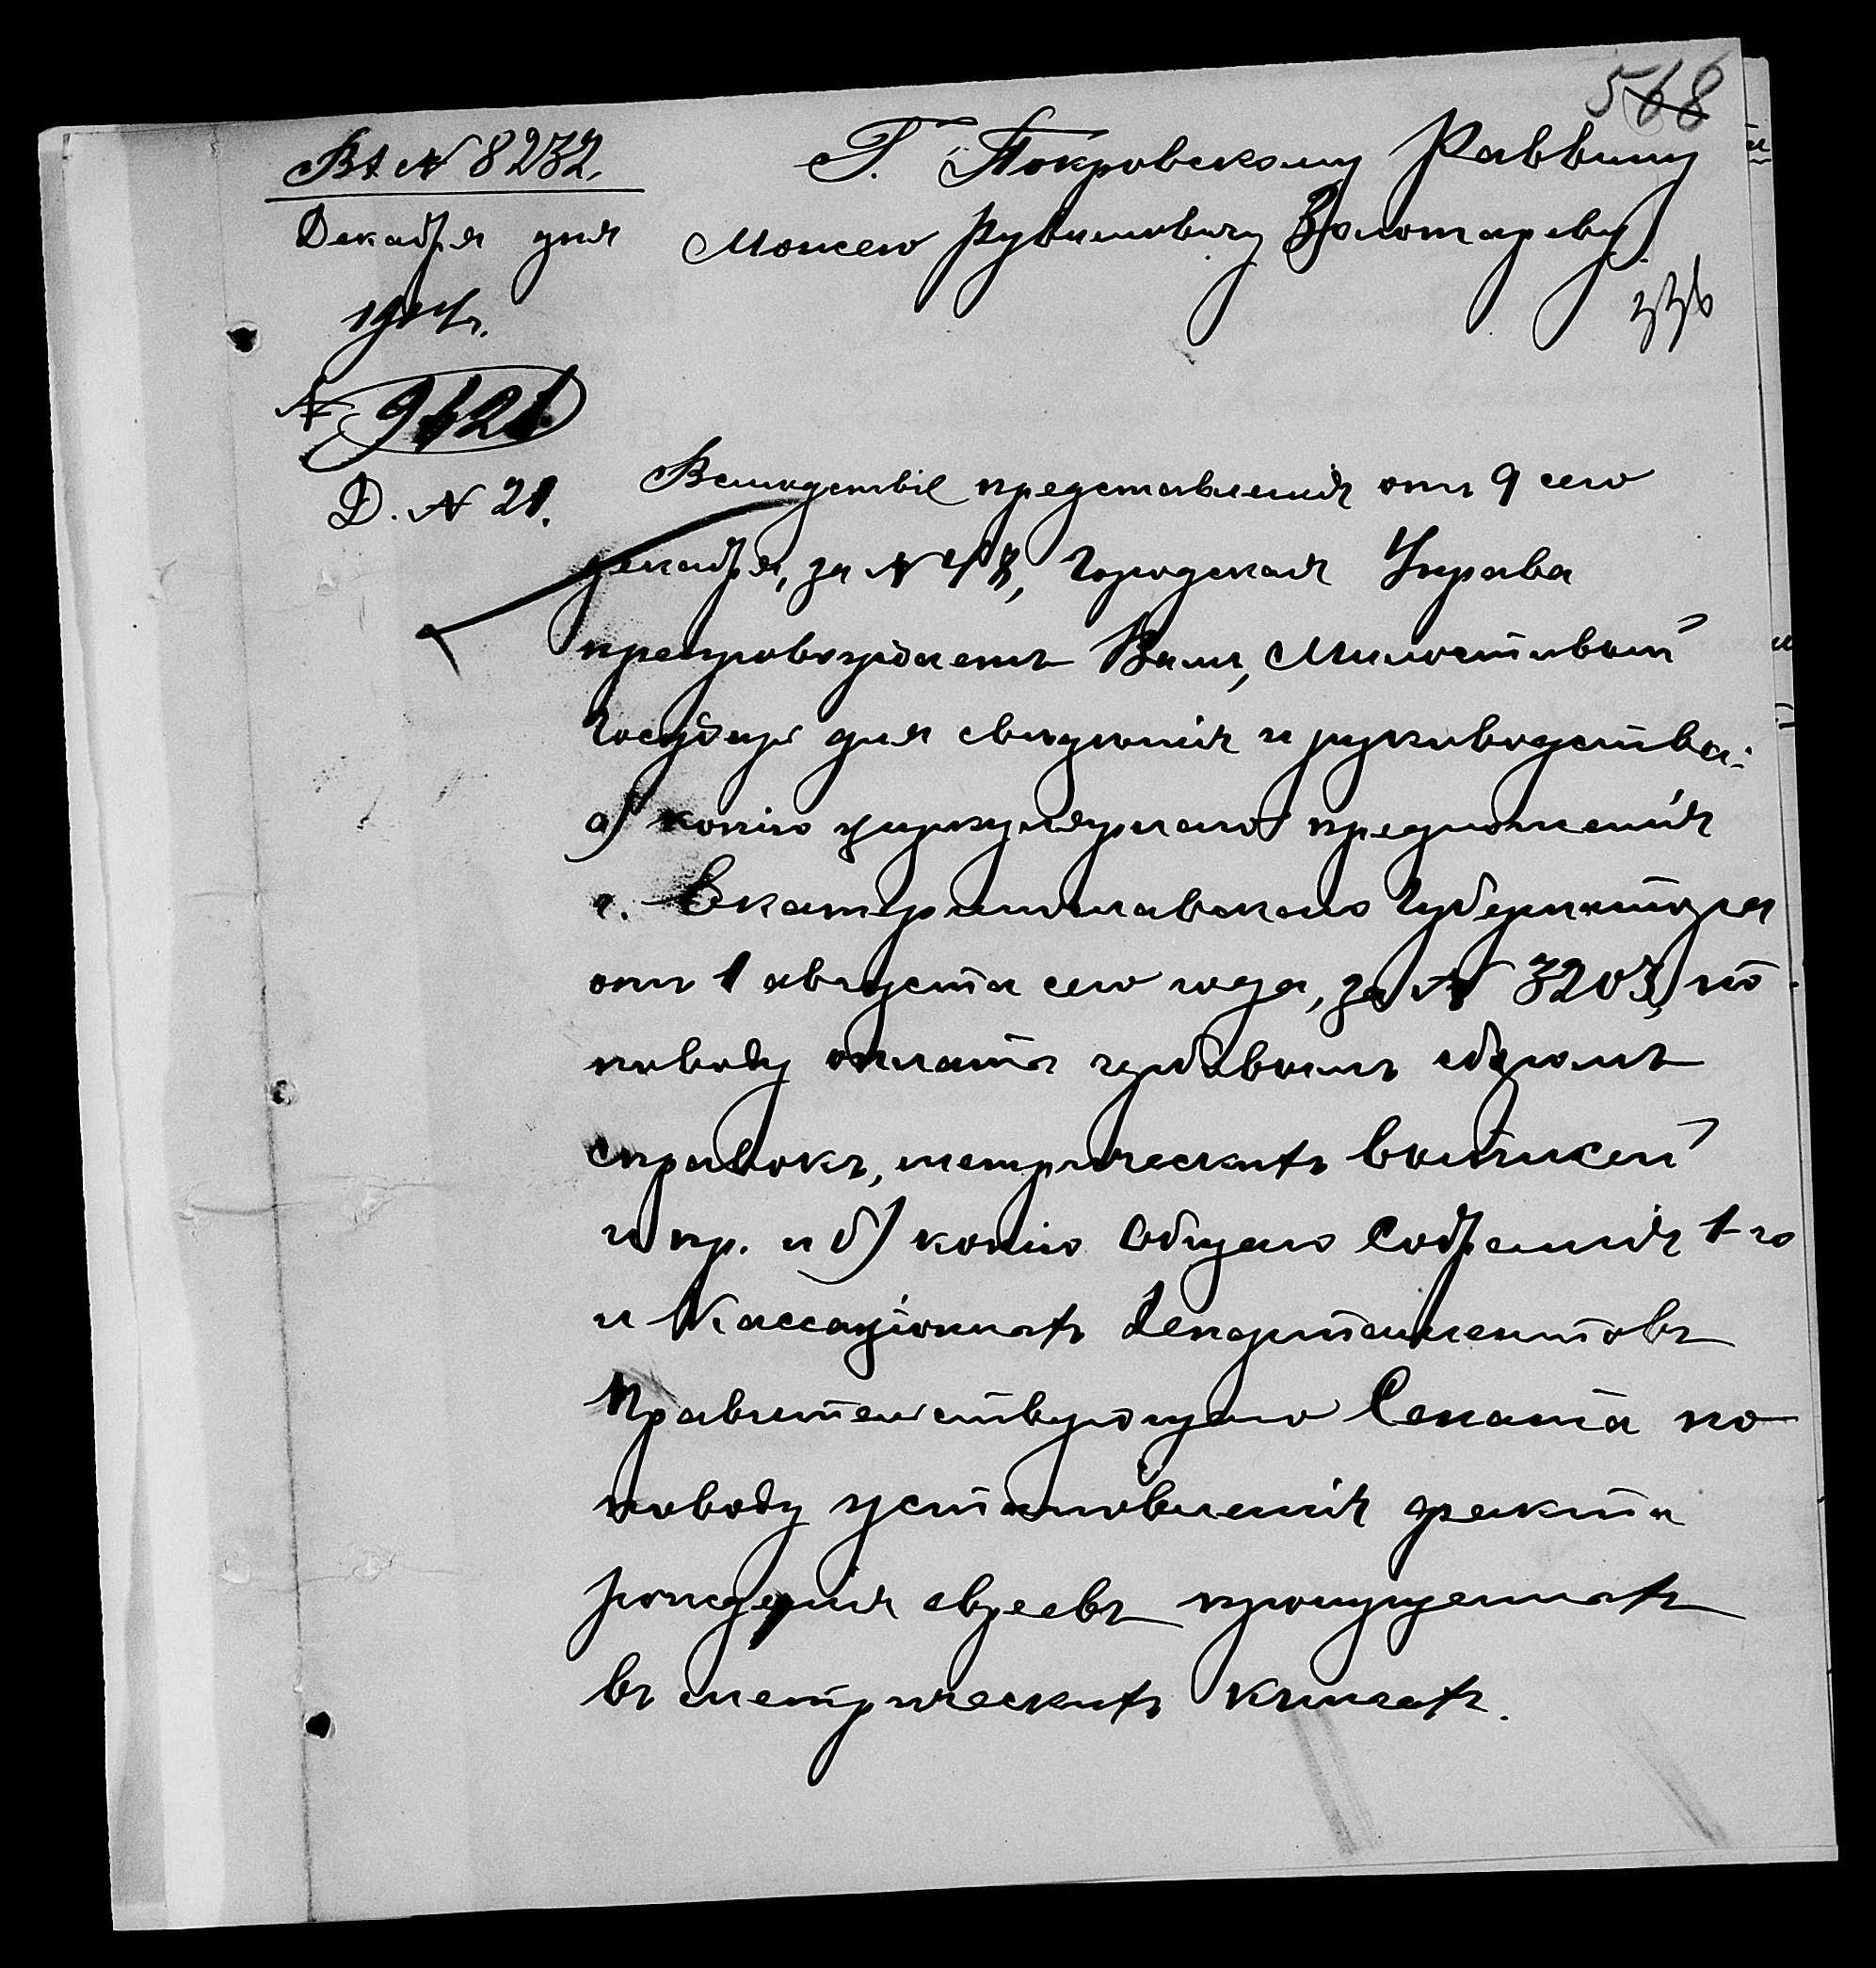 568
Вх. № 8232.
Декабря дня
1914 г.
№ 9421
Д. № 21.
Г. Покровскому Раввину
Моисею Рувимовичу Золотареву.
Вслѣдствіе представленія отъ 9 сего
декабря, за № 48, Городская Управа
препровождаетъ Вамъ, Милостивый
Государь для свѣдѣнія и руководства:
а) копію циркулярнаго предложенія
г. Екатеринославскаго Губернатора
отъ 1 августа сего года, за № 3203, по
поводу оплаты гербовымъ сборомъ
справокъ, метрическихъ выписей
и пр. и б) копію Общаго Собранія 1-го
и Кассаціонныхъ Департаментовъ
Правительствующаго Сената по
поводу установленія факта
рожденія евреевъ пропущенныхъ
въ метрическихъ книгахъ.